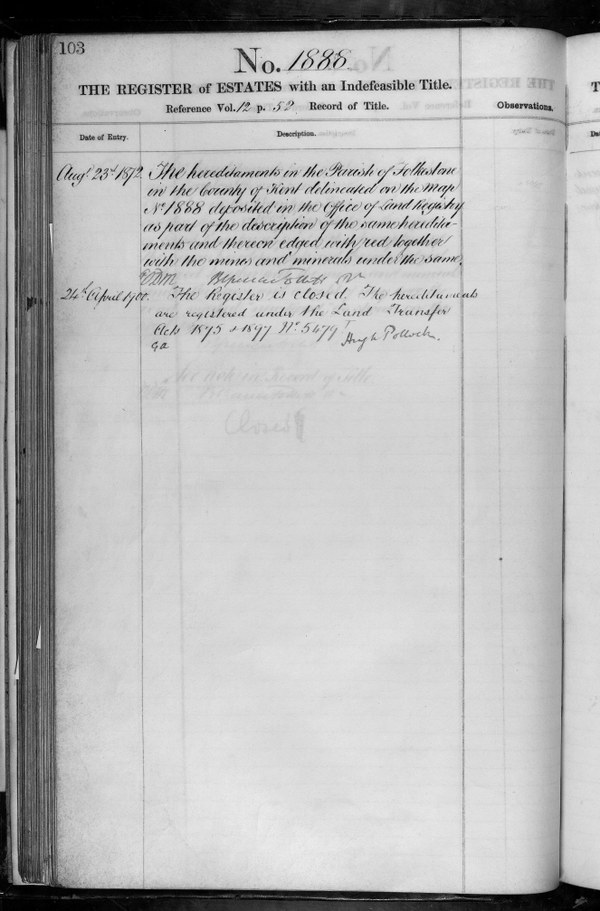 103
No. 1888
THE REGISTER of ESTATES with an Indefeasible Title.
Reference Vol. 12 p. 52 Record of Title.
Observations.
Date of Entry.
Description.
Augt 23rd 1872
The hereditaments in the Parish of Folkestone
in the County of Kent delineated on the map
No 1888 deposited in the Office of Land Registry
as part of the description of the same heredita-
ments and thereon edged with red together
with the mines and minerals under the same.
24th April 1900.
The Register is closed. The hereditaments
are registered under the Land Transfer
Acts 1875 & 1897 No. 5479
Hugh Pollock.
Closed